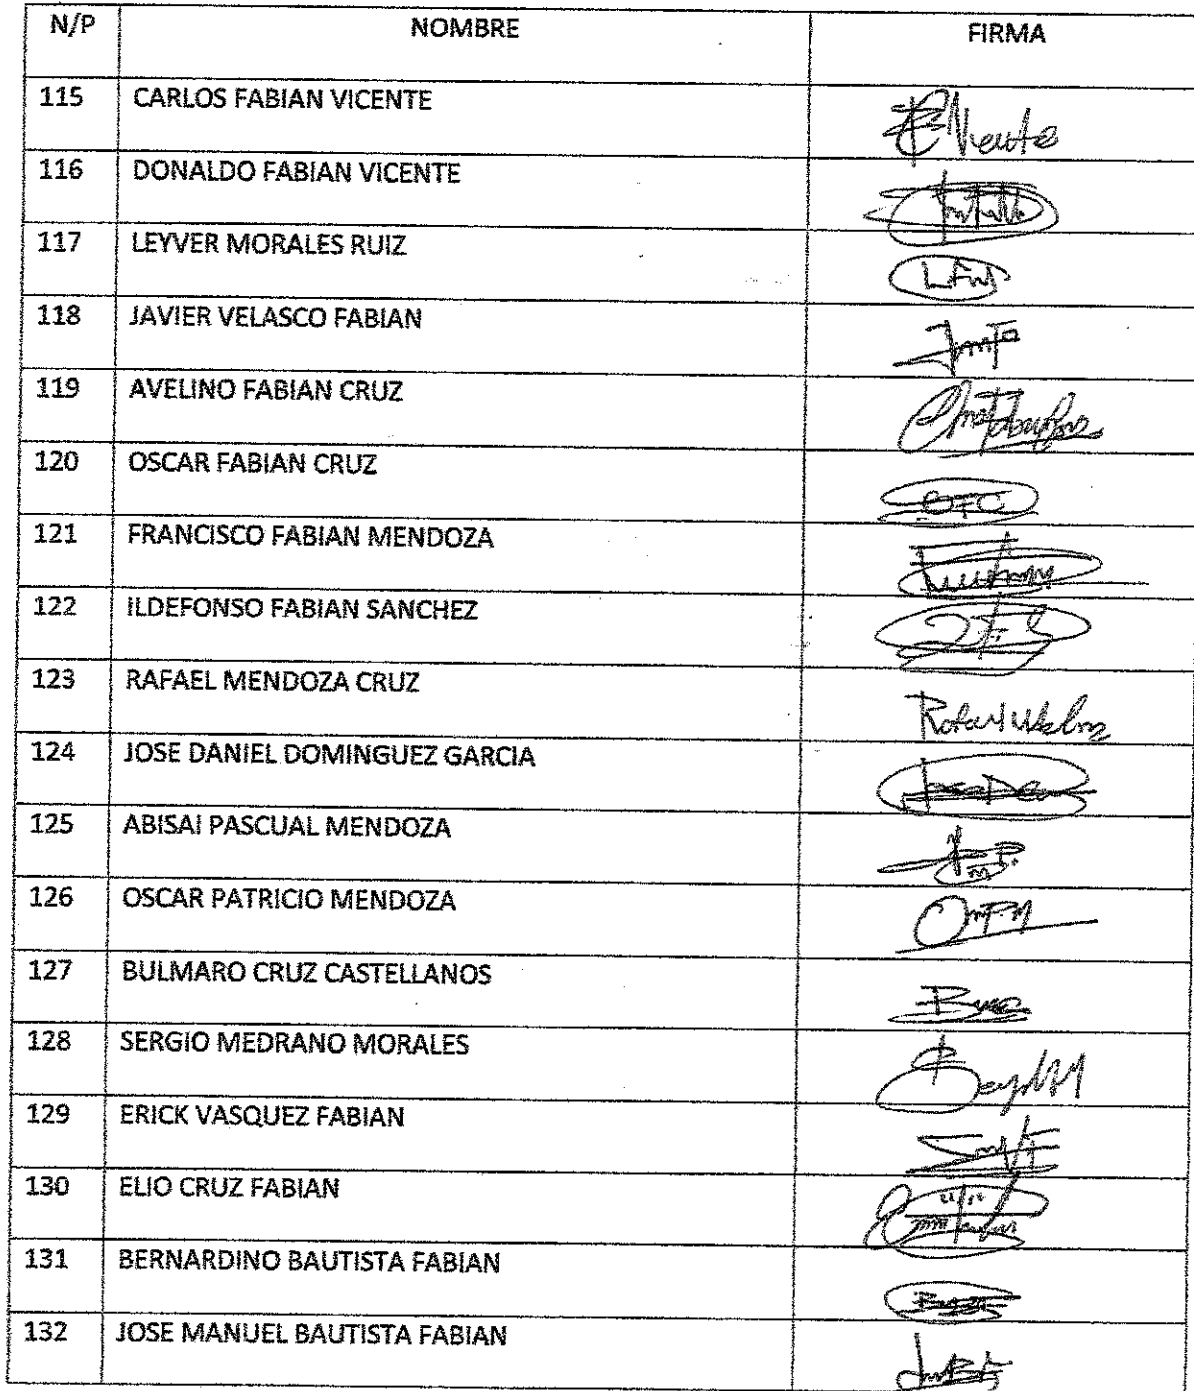 N/P NOMBRE FIRMA
115 CARLOS FABIAN VICENTE
116 DONALDO FABIAN VICENTE
117 LEYVER MORALES RUIZ
118 JAVIER VELASCO FABIAN
119 AVELINO FABIAN CRUZ
120 OSCAR FABIAN CRUZ OFC
121 FRANCISCO FABIAN MENDOZA
122 ILDEFONSO FABIAN SANCHEZ
123 RAFAEL MENDOZA CRUZ
124 JOSE DANIEL DOMINGUEZ GARCIA
125 ABISAI PASCUAL MENDOZA
126 OSCAR PATRICIO MENDOZA
127 BULMARO CRUZ CASTELLANOS
128 SERGIO MEDRANO MORALES
129 ERICK VASQUEZ FABIAN
130 ELIO CRUZ FABIAN
131 BERNARDINO BAUTISTA FABIAN
132 JOSE MANUEL BAUTISTA FABIAN